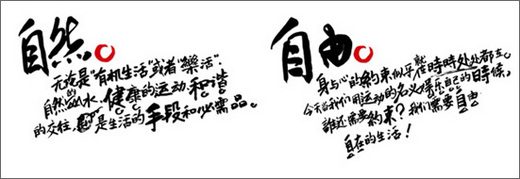 自然。
无论是"有机生活"或者"樂活".
自然山水、健康的运动、和谐
的交往,都是生活的手段和必需品。
自由。
身与心的約束似乎就在時時处处都在。
今天当我们用运动的名义-自己的時候,
誰还需要約束?我们需要自由
自在的生活!